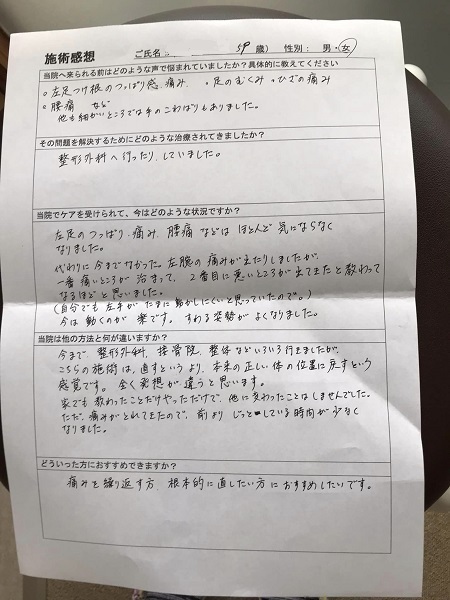 施術感想 ご氏名: 59 歳) 性別: 男・女
当院へ来られる前はどのような声で悩まれていましたか?具体的に教えてください
○左足つけ根のつっぱり感、痛み ・足のむくみ・ひざの痛み
○腰痛 など
他も細かいところでは手のこわばりもありました。
その問題を解決するためにどのような治療されてきましたか?
整形外科へ行ったりしていました。
当院でケアを受けられて、今はどのような状況ですか?
左足のつっぱり、痛み、腰痛などはほとんど気にならなく
なりました。
代わりに今までなかった左腕の痛みが出たりしましたが、
一番痛いところが治まって、2番目に悪いところが出てきたと教わって
なるほどと思いました。
(自分でも左手がたまに動かしにくいと思っていたので。)
今は動くのが楽です。すわる姿勢がよくなりました。
当院は他の方法と何が違いますか?
今まで、整形外科、接骨院、整体などいろいろ行きましたが、
こちらの施術は、直すというより、本来の正しい体の位置に戻すという
感覚です。全く発想が違うと思います。
家でも教わったことだけやっただけで、他に変わったことはしませんでした。
ただ、痛みがとれてきたので、前よりじっとしている時間が少なく
なりました。
どういった方におすすめできますか?
痛みを繰り返す方、根本的に直したい方におすすめしたいです。